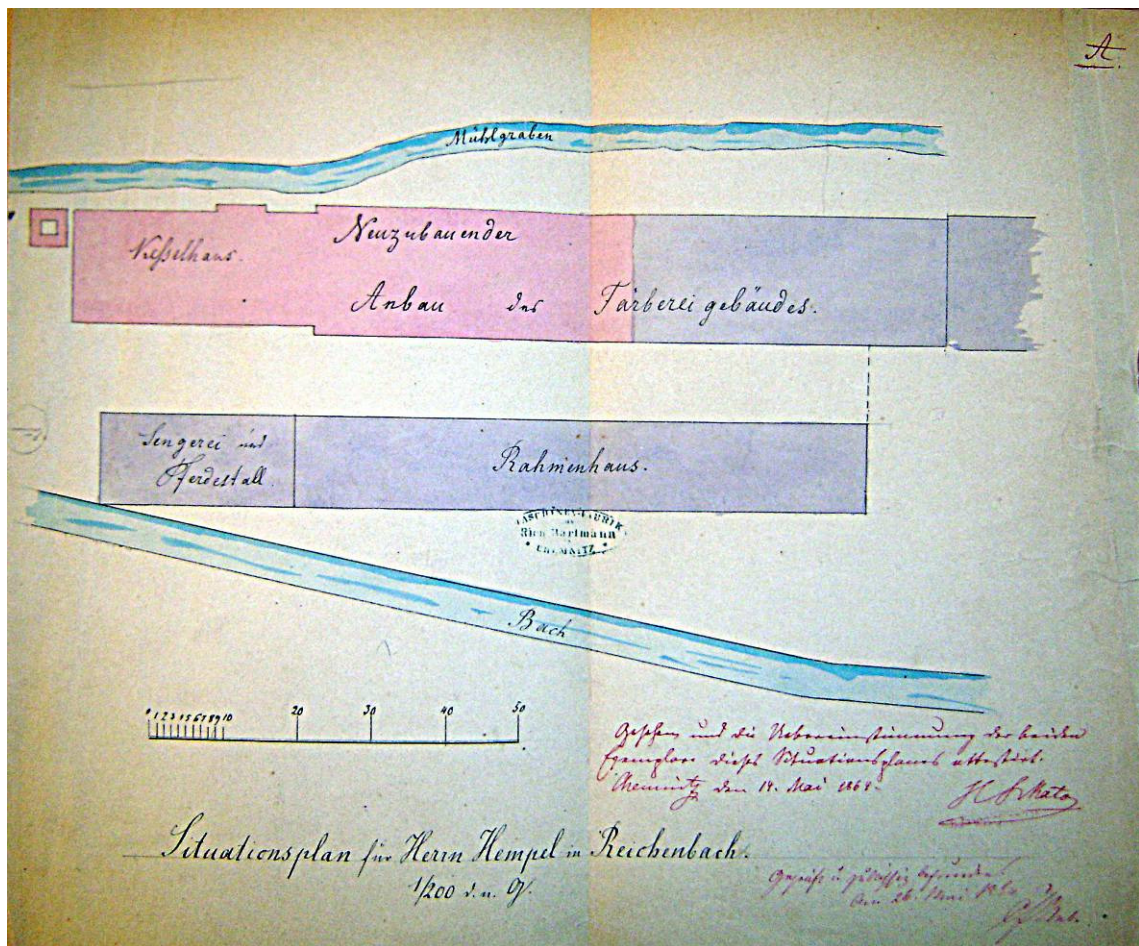 A.
Mühlgraben
Kesselhaus.
Neuzubauender
Anbau des Färbereigebäudes.
Sengerei und
Pferdestall.
Rahmenhaus.
MASCHINEN-FABRIK
Rich. Hartmann
CHEMNITZ
Bach
0 1 2 3 4 5 6 7 8 9 10 20 30 40 50
Gesehen und die Uebereinstimmung der beiden
Exemplare dieses Situationsplanes attestirt.
Chemnitz den 14. Mai
Situationsplan für Herrn Hempel in Reichenbach.
1/200 d. n. Gr.
Geprüft u. zulässig befunden
den 26. Mai